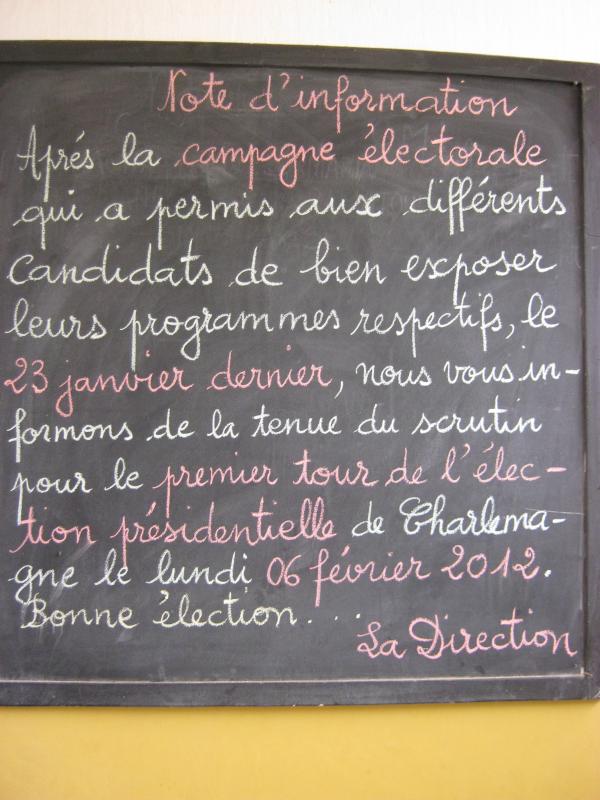 Note d'information
Aprés la campagne électorale
qui a permis aux différents
candidats de bien exposer
leurs programmes respectifs, le
23 janvier dernier, nous vous in-
formons de la tenue du scrutin
pour le premier tour de l'élec-
tion présidentielle de Charlema-
gne le lundi 06 février 2012.
Bonne élection...
La Direction